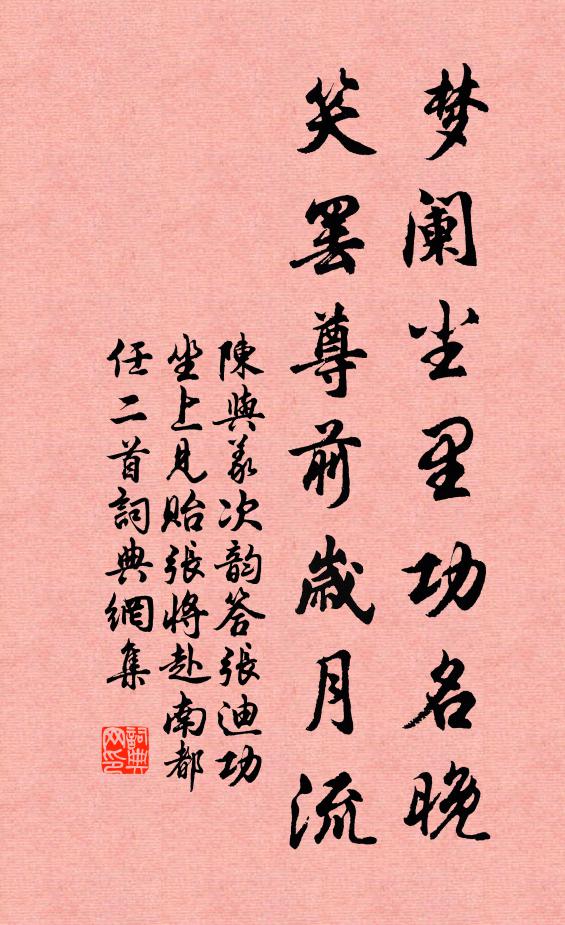 梦阑尘里功名晚
笑罢尊前歳月流
陳與義次韵答張迪功
坐上見貽張将赴南都
任二首詞典網集
詞典网印